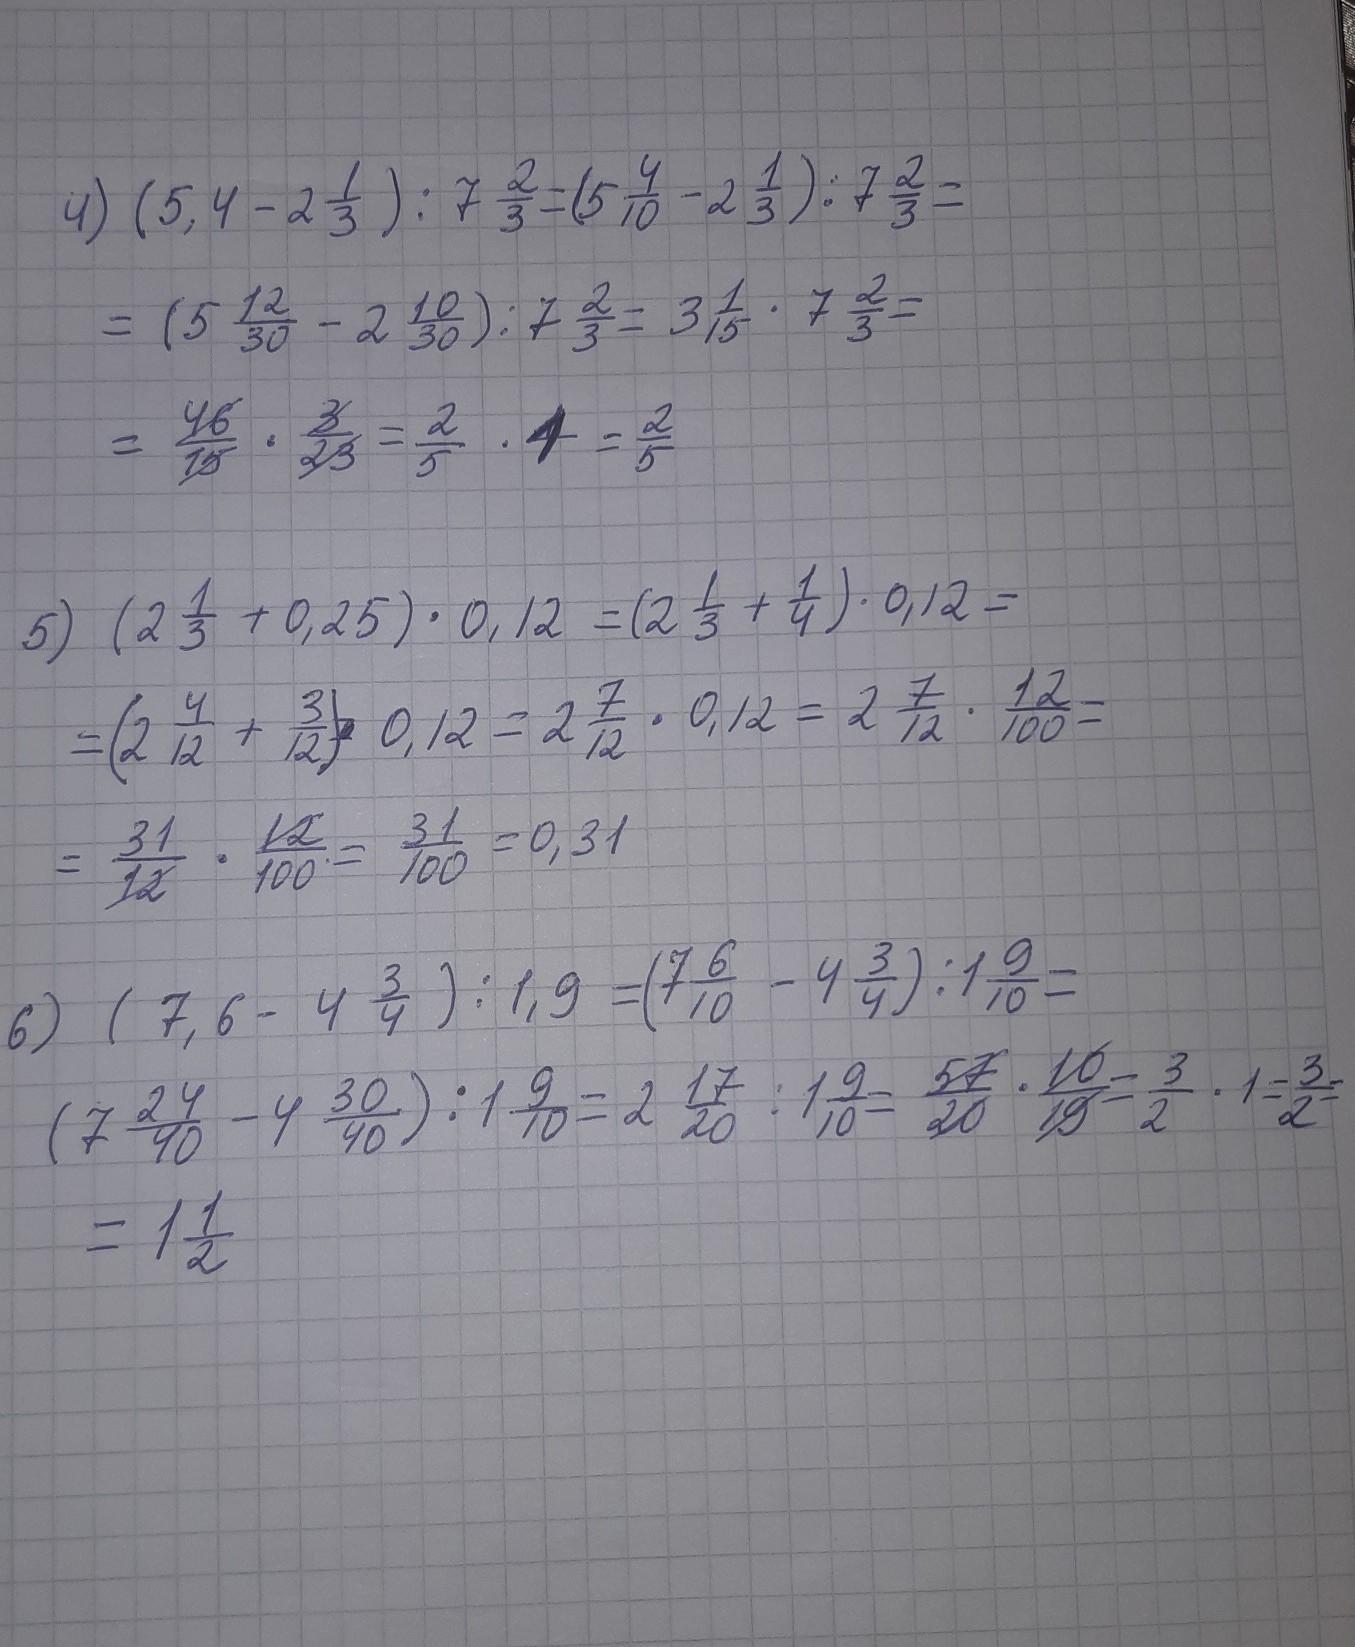 4) (5,4 - 2 1/3) : 7 2/3 = (5 4/10 - 2 1/3) : 7 2/3 =
= (5 12/30 - 2 10/30) : 7 2/3 = 3 1/15 · 7 2/3 =
= 46/15 · 3/23 = 2/5 · 1 = 2/5
5) (2 1/3 + 0,25) · 0,12 = (2 1/3 + 1/4) · 0,12 =
= (2 4/12 + 3/12) · 0,12 = 2 7/12 · 0,12 = 2 7/12 · 12/100 =
= 31/12 · 12/100 = 31/100 = 0,31
6) (7,6 - 4 3/4) : 1,9 = (7 6/10 - 4 3/4) : 1 9/10 =
(7 24/40 - 4 30/40) : 1 9/10 = 2 17/20 : 1 9/10 = 57/20 · 10/19 = 3/2 · 1 = 3/2 =
= 1 1/2